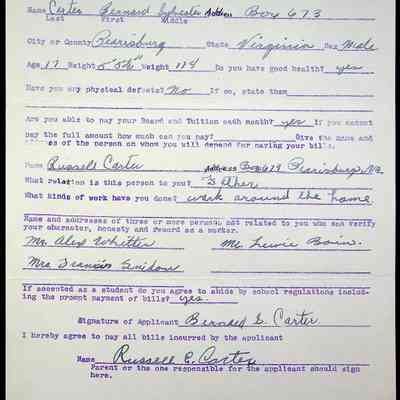 Name Carter Bernard Sylvester Address Box 673
Last First Middle
City or County Pearisburg State Virginia Sex Male
Age 17 Height 5' 5½" Weight 114 Do you have good health? yes
Have you any physical defects? No If so, state them
Are you able to pay your Board and Tuition each month? yes If you cannot
pay the full amount how much can you pay? Give the name and
address of the person on whom you will depend for paying your bills.
Name Russell Carter Address Box 673 Pearisburg, Va.
What relation is this person to you? Father
What kinds of work have you done? work around the home
Name and addresses of three or more persons not related to you who can verify
your character, honesty and record as a worker.
Mr. Alex Whitten Mr. Lewis Bain.
Mrs Francis
If accepted as a student do you agree to abide by school regulations includ-
ing the prompt payment of bills? yes.
Signature of Applicant Bernard S. Carter
I hereby agree to pay all bills incurred by the applicant
Name Russell E. Carter
Parent or the one responsible for the applicant should sign
here.